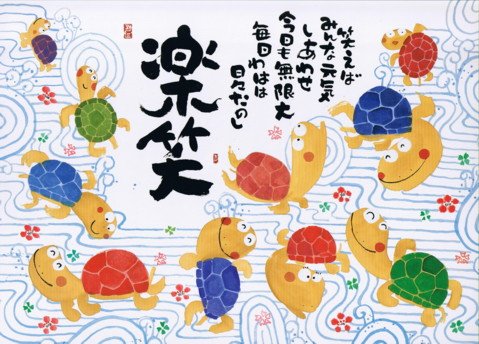 笑えば
みんな元気
しあわせ
今日も無限大
毎日わはは
日々たのし
楽笑